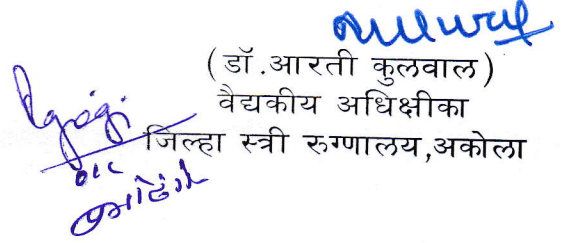 (डॉ.आरती कुलवाल)
वैद्यकीय अधिक्षीका
जिल्हा स्त्री रुग्णालय,अकोला